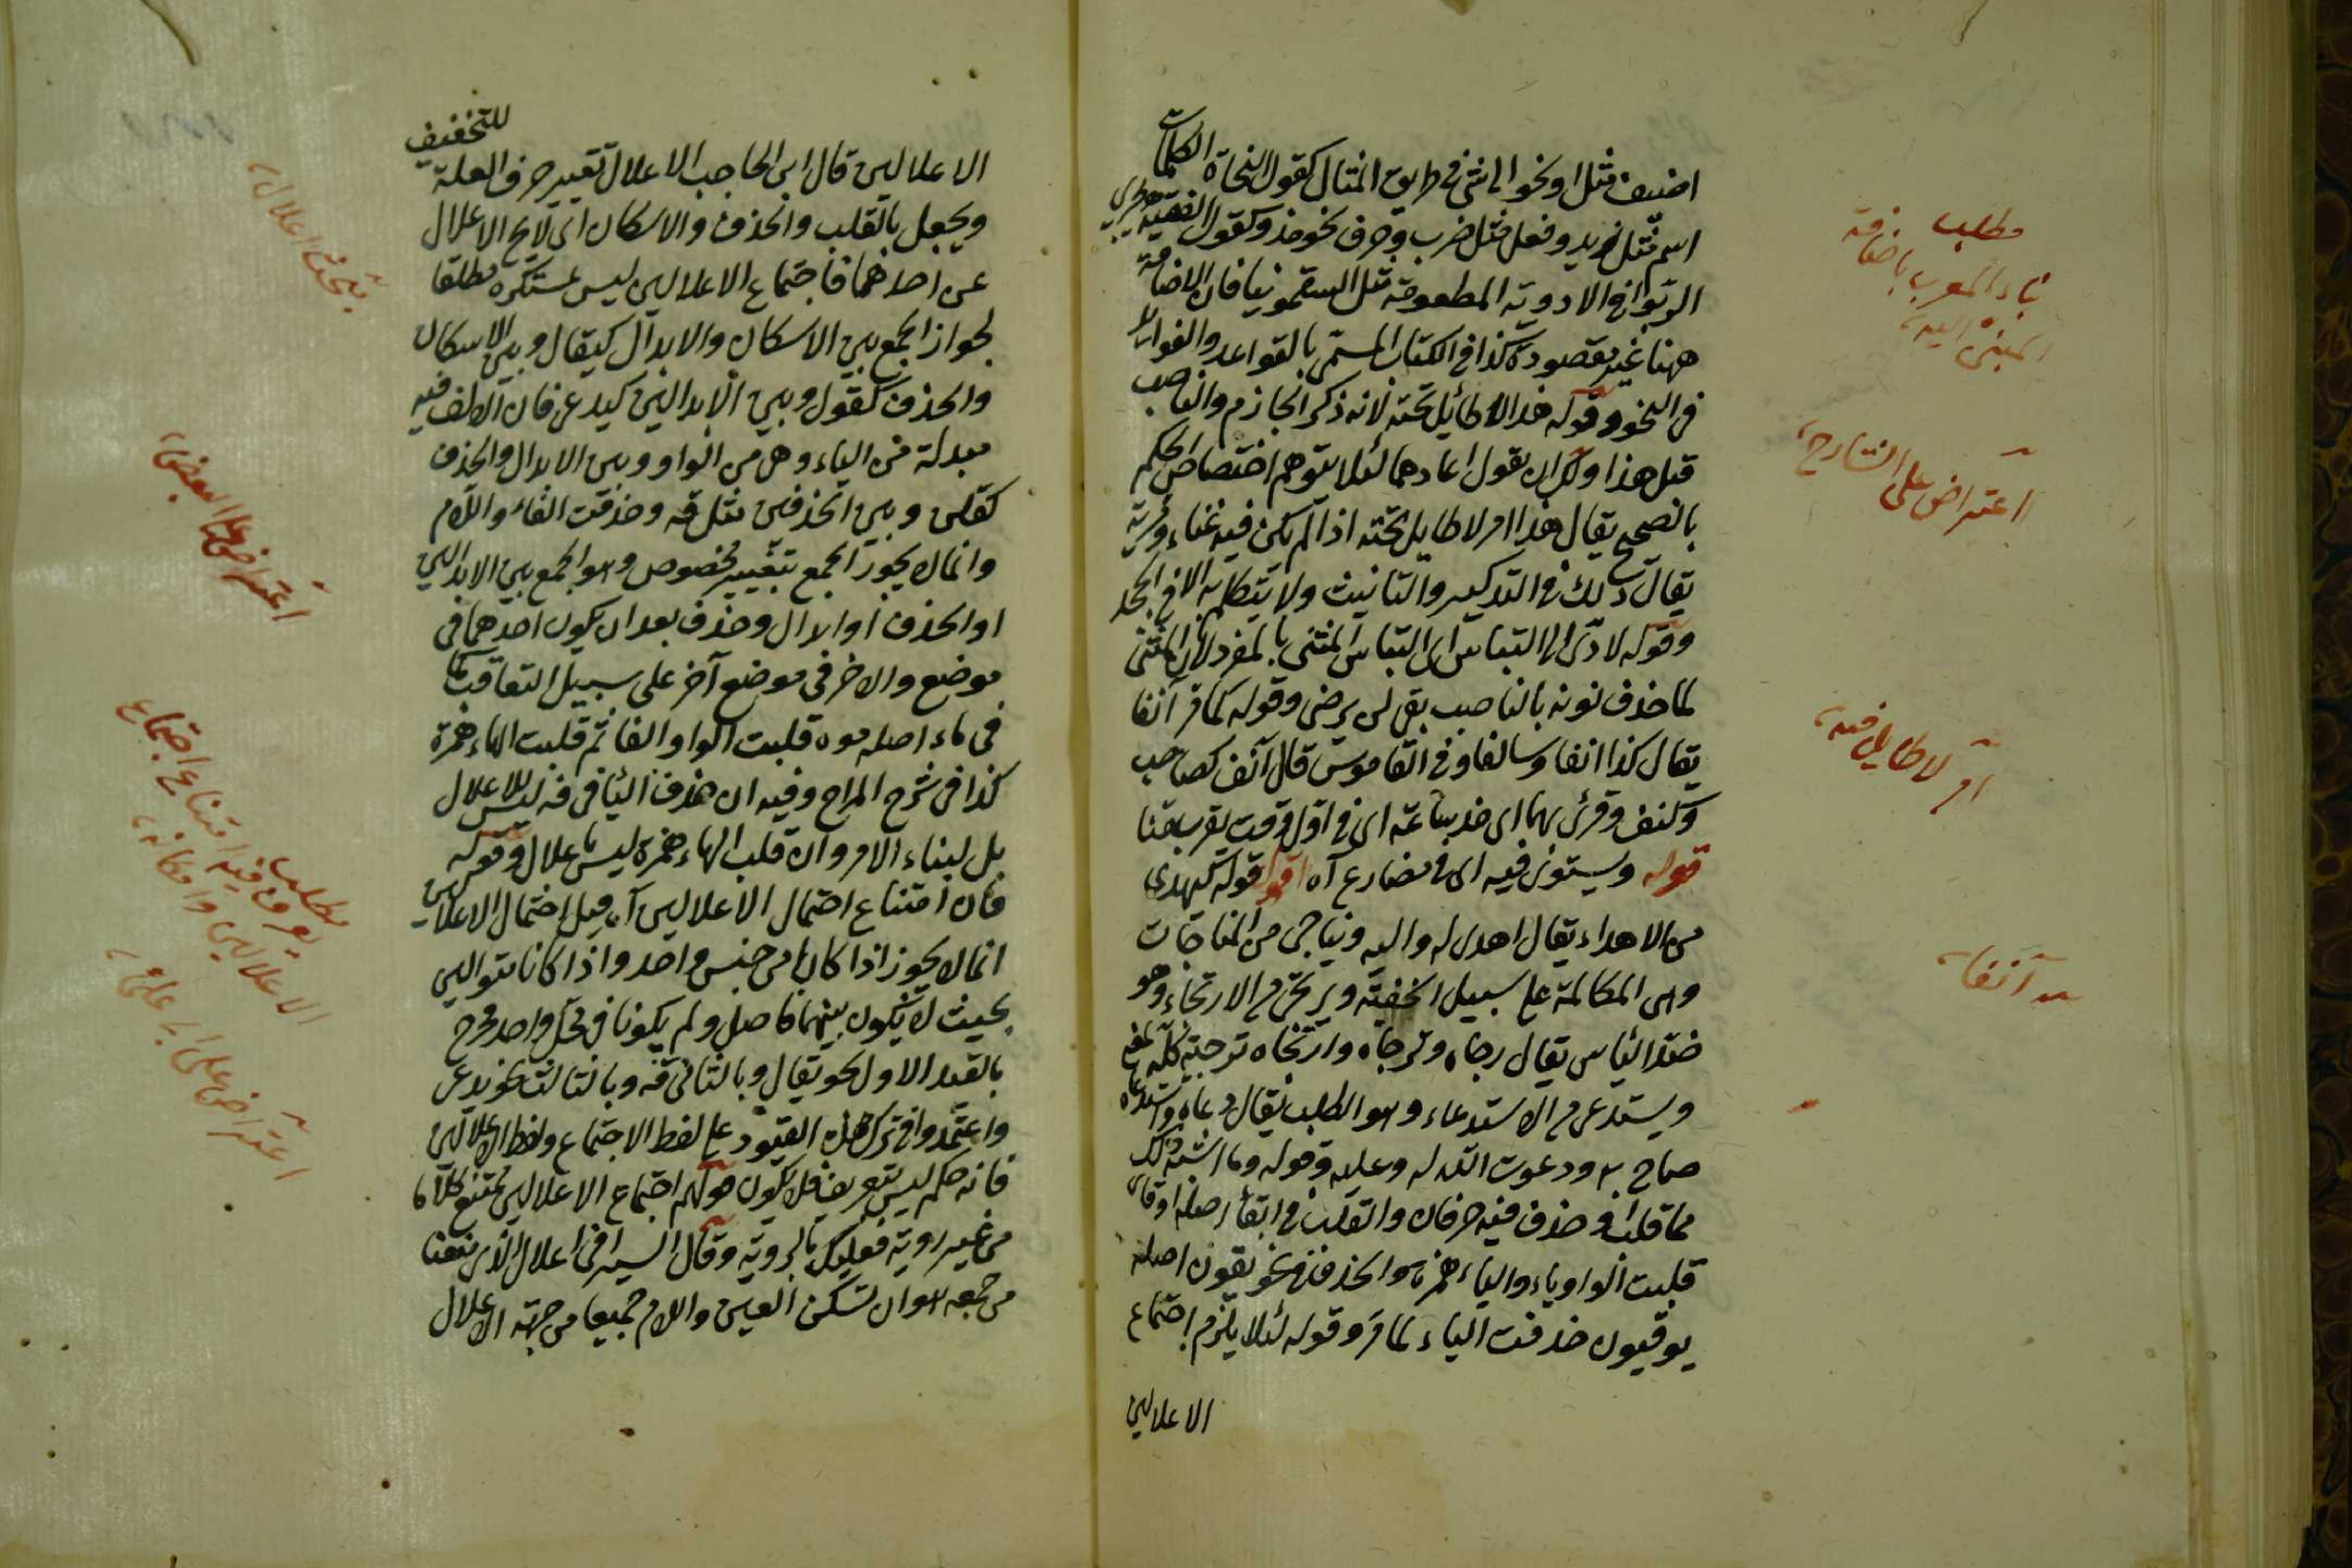 اضيف مثل او نحو الى شئ في طريق المثال كقول النحاة الكلمات
اسم مثل زيد وفعل مثل ضرب وحرف نحو منذ وكقول الفقيه يجري
الربوا في الادوية المطعومة مثل السقمونيا فان الاضافة
ههنا غير مقصودة كذا في الكتاب المسمى بالقواعد والفوائد
في النحو وقوله هذا لا طائل تحته لانه ذكر الجازم والناصب
قبل هذا ولك ان يقول اعادهما لئلا يتوهم اختصاص الحكم
بالصحيح يقال هذا امر لا طايل تحته اذا لم يكن فيه غناء ومزية
يقال ذلك في التذكير والتانيث ولا يتكلم به الا في الجحد
وقوله لادى الى التباس اى التباس المثنى بالمفرد لان المثنى
لما حذف نونه بالناصب بقى لن يرضى وقوله كما مر آنفا
يقال كذا انفا وسالفا وفي القاموس قال آنف كصاحب
وكنف وقرئ بهما اى مذ ساعة اى في اول وقت يقرب منا
قوله ويستوى فيه اى في مضارع آه اقول قوله كيهدى
من الاهداء يقال اهدى له واليه ويناجى من المناجات
وهى المكالمة على سبيل الخفية ويرتجى من الارتجاء وهو
ضد الياس يقال رجاه وترجاه وارتجاه ترجية كله بمعنى
ويستدعى من الاستدعاء وهو الطلب يقال دعاه واستدعاه
صاح به ودعوت الله له وعليه وقوله وما اشبه ذلك
مما قلب او حذف فيه حرفان والقلب في ابقاء اصله اوقاى
قلبت الواو ياء والياء همزة والحذف في نحو يقون اصله
يوقيون حذفت الياء لما مر وقوله لئلا يلزم اجتماع
الاعلالين
مطلب
بناء المعرب باضافة
المبنى اليه
اعتراض على الشارح
امر لا طايل فيه
آنفا
الاعلالين قال ابن الحاجب الاعلال تغيير حرف العلة للتخفيف
ويجعل بالقلب والحذف والاسكان اى لا يخ الاعلال
عن احدهما فاجتماع الاعلالين ليس بمستكره مطلقا
لجواز الجمع بين الاسكان والابدال كيقال وبين الاسكان
والحذف كقول وبين الابدالين كيدعى فان الالف فيه
مبدلة من الياء وهى من الواو وبين الابدال والحذف
كقلن وبين الحذفين مثل قه وحذفت الفاء واللام
وانما لا يجوز الجمع بتغيير مخصوص وهو الجمع بين الابدالين
او الحذف او ابدال وحذف بعد ان يكون احدهما في
موضع والاخر في موضع آخر على سبيل التعاقب كما
في ماء اصله موه قلبت الواو الفا ثم قلبت الهاء همزة
كذا في شرح المراح وفيه ان حذف اليا في قه ليس للاعلال
بل لبناء الامر وان قلب الهاء همزة ليس باعلال وقوله
فان امتناع احتمال الاعلالين آه قيل احتمال الاعلالين
انما لا يجوز اذا كانا من جنس واحد واذا كانا متواليين
بحيث لا يكون بينهما فاصل ولم يكونا في محل واحد فخرج
بالقيد الاول نحو يقال وبالثانى قه وبالثالث نحو يدعى
واعتمدوا في ترك هذه القيود على لفظ الاجتماع ولفظ الاعلالين
فانه حكم ليس بتعريف فلا يكون قولهم اجتماع الاعلالين ممتنع كلاما
من غير روية فعليك بالروية وقال السيرافى اعلال الذى منعنا
من جمعه هو ان تسكن العين واللام جميعا من جهة الاعلال
بحث اعلال
اعتراض على البعض
مطلب
يعرف فيه امتناع اجتماع
الاعلالين وامكانه
اعتراض على